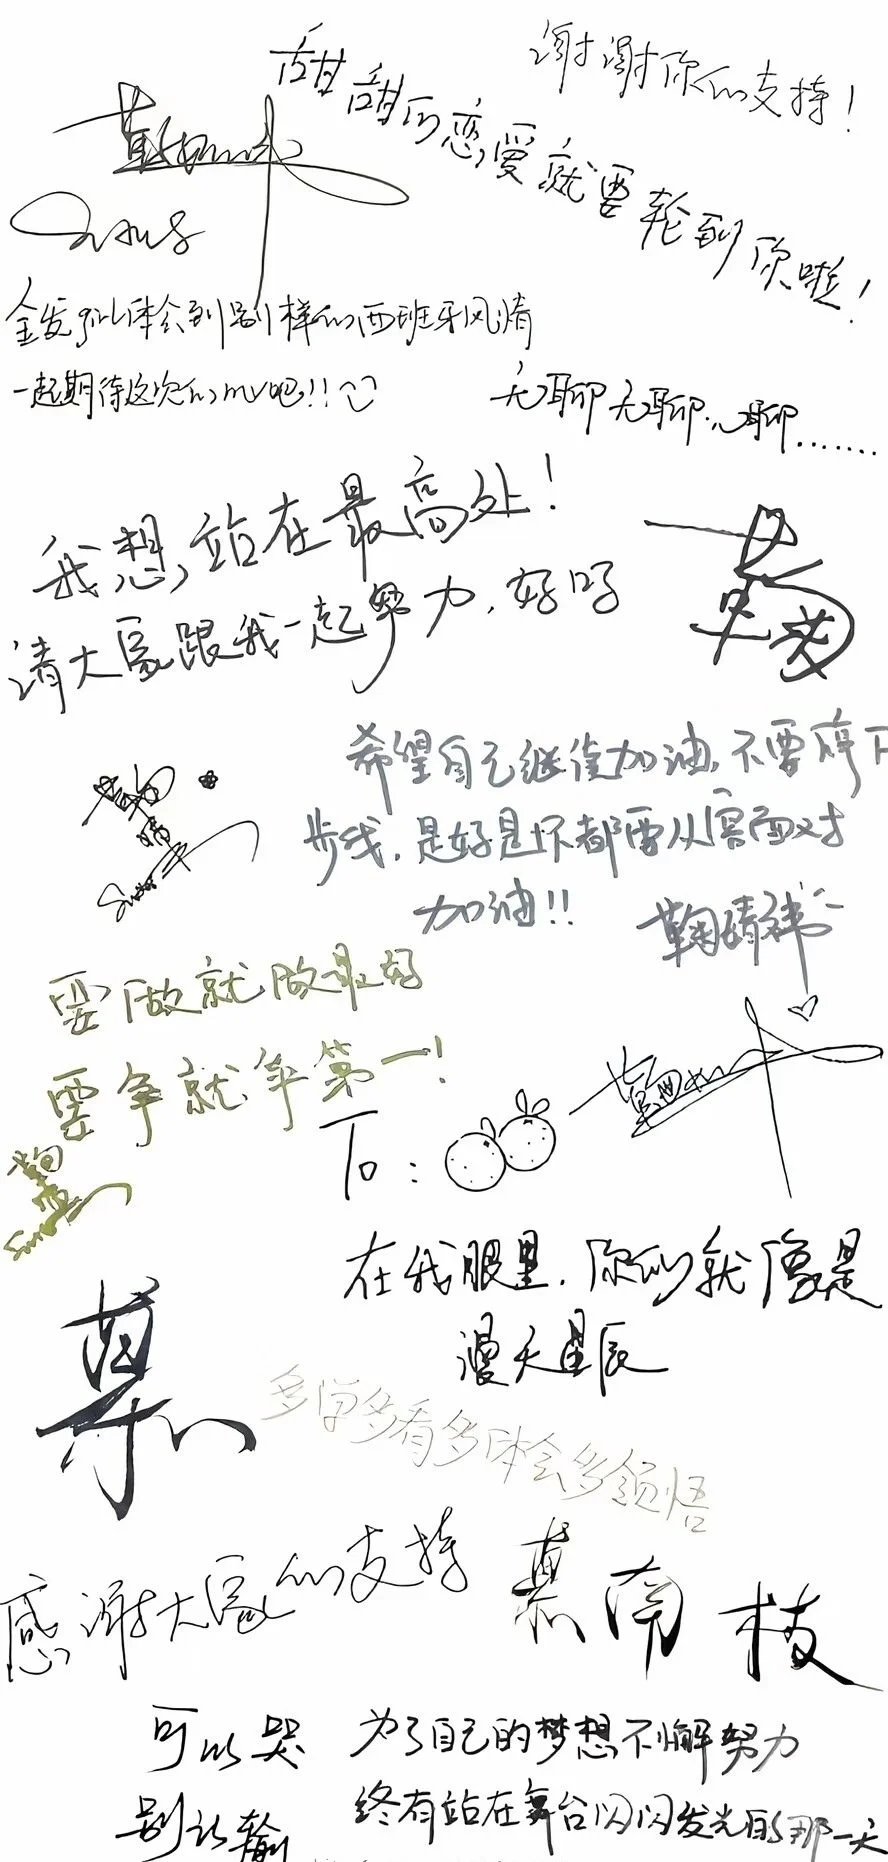 谢谢你们的支持！
甜甜的恋爱就要轮到你啦！
金发 体会到别样的西班牙风情
一起期待这次的mv吧!!
无聊无聊 聊.......
我想站在最高处！
请大家跟我一起努力，好吗
希望自己继续加油，不要停下
步伐，是好是坏都要从容面对
加油!!
鞠婧祎
要做就做最好
要争就争第一！
To：
在我眼里，你们就像是
漫天星辰
慕
多学多看多体会多领悟
感谢大家的支持
慕南枝
可以哭
别认输
为了自己的梦想不懈努力
终有站在舞台闪闪发光的那一天